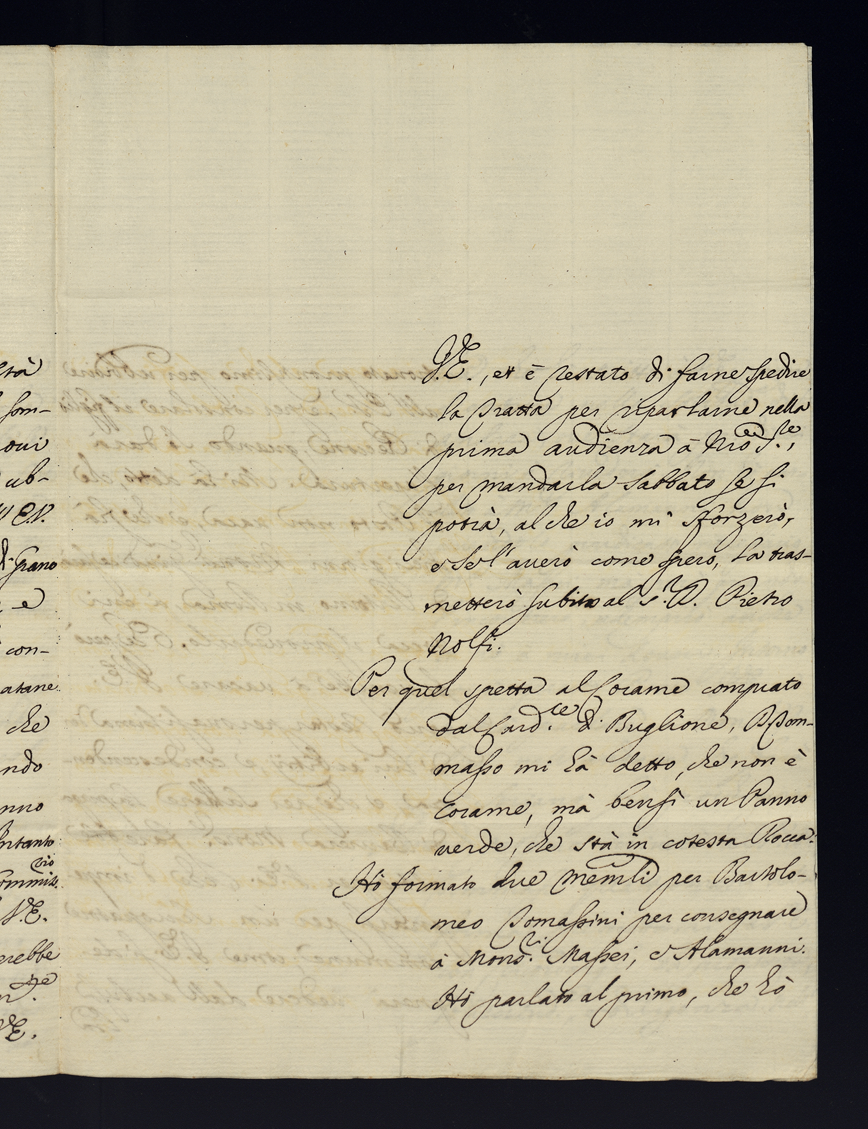 stà
som-
oui
ub-
V.E.
di grano
e
con-
atane
che
ndo
nno
Intanto
ommiss.rio
V.E.
erebbe
V.E.
V.E., et è restato di farne spedire
la Tratta per riparlarne nella
prima audienza à Nrõ Sre,
per mandarla Sabbato se si
potrà, al che io mi sforzerò,
e se l'auerò come spero, la tras-
metterò subito al S.r D. Pietro
Nolfi.
Per quel spetta al Corame comprato
dal Card.le di Buglione, D. Dom-
masso mi hà detto, che non è
Corame, mà bensì un Panno
uerde, che stà in cotesta Rocca.
Hò formato due Mem.li per Bartolo-
meo Tomassini per consegnare
à Mons.ri Massei, e Alamanni.
Hò parlato al primo, che hà